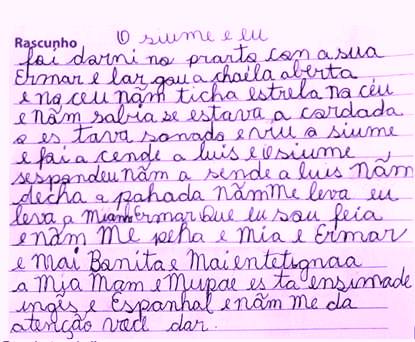 O siume e eu
Rascunho
foi darni no prarto con a sua
Ermar e lar gou a chaila aberta
e no ceu nãm ticha estrela na céu
e nãm sabia se estava a cordada
o es tava sonado e viu o siume
e foi a cende a luis e o siume
sespondeu nãm a sende a luis nãm
decha a pahada nãm me leva eu
leva a Ermar Que eu sou feia
e nãm me peha e mia e Ermar
e mai Bonita e Mai
a mja mam e Mupae es ta ensimade
ingis e Espanhal e nãm me da
atencão vace dar.